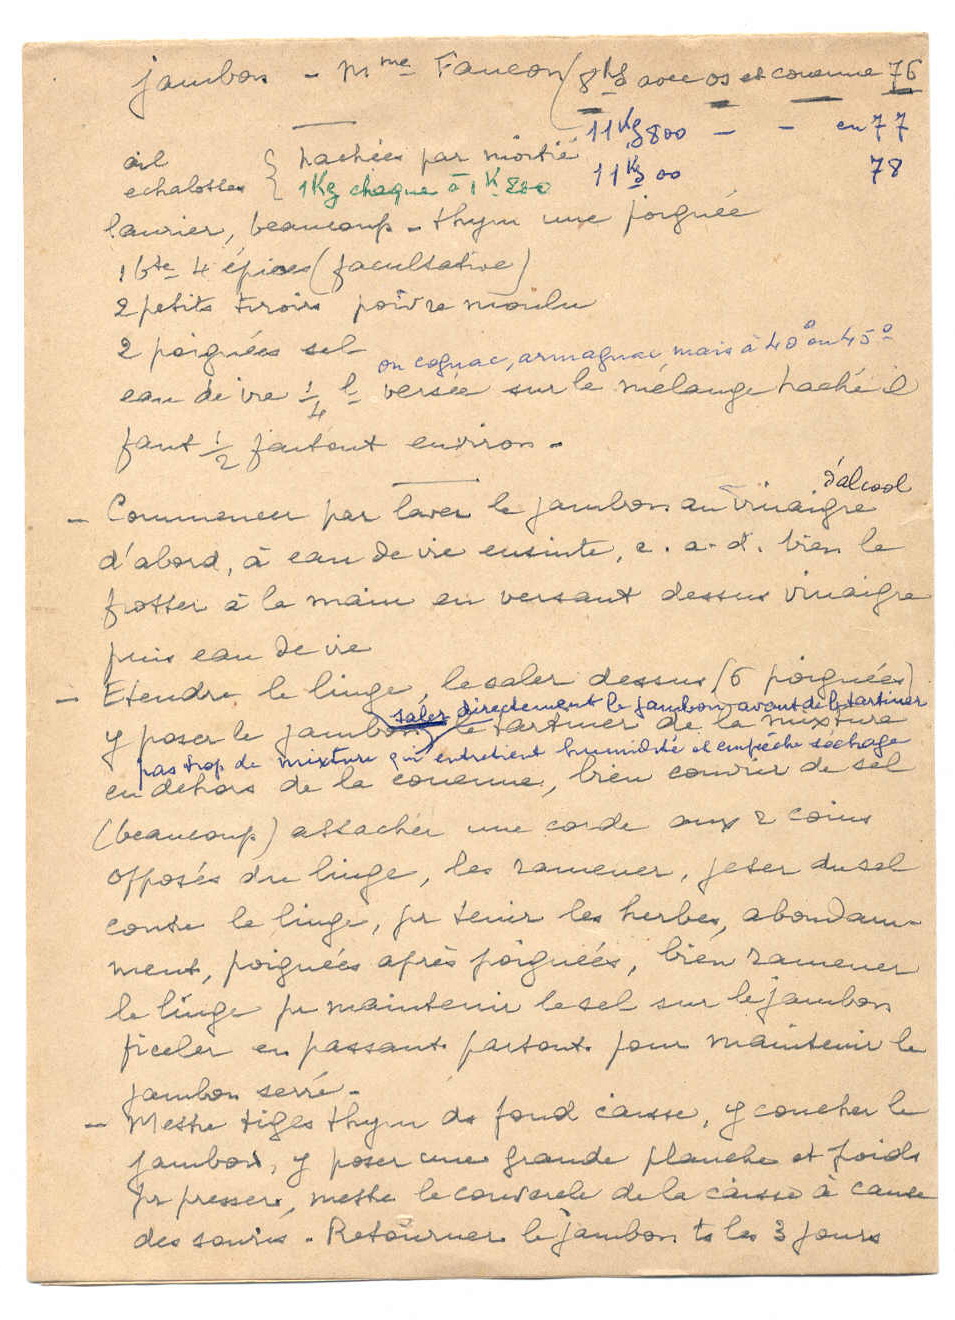 jambon - Mme Faucon (8kg avec os et couenne 76
11Kg800 - - en 77
ail { hachées par moitié 11Kg 00 78
echalottes { 1Kg chaque à 1K 200
laurier, beaucoup - thym une poignée
1 bte 4 épices (facultative)
2 petits tiroirs poivre moulu
2 poignées sel
ou cognac, armagnac mais à 40° ou 45°
eau de vie 1/4 l versée sur le mélange haché il
faut 1/2 faitout environ -
d'alcool
- Commencer par laver le jambon au vinaigre
d'abord, à eau de vie ensuite, c. a. d. bien le
frotter à la main en versant dessus vinaigre
puis eau de vie
- Etendre le linge, le saler dessus (6 poignées)
saler directement le jambon avant de le tartiner
y poser le jambon, le tartiner de la mixture
pas trop de mixture qui entretient humidité et empêche séchage
en dehors de la couenne, bien couvrir de sel
(beaucoup) attacher une corde aux 2 coins
opposés du linge, les ramener, jeter du sel
contre le linge, pr tenir les herbes, abondam-
ment, poignées après poignées, bien ramener
le linge pr maintenir le sel sur le jambon
ficeler en passant partout pour maintenir le
jambon serré -
- Mettre tiges thym ds fond caisse, y coucher le
jambon, y poser une grande planche et poids
pr presser, mettre le couvercle de la caisse à cause
des souris - Retourner le jambon ts les 3 jours